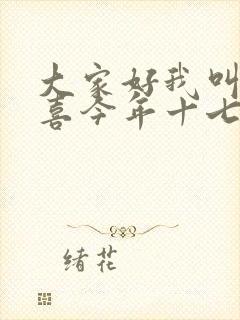 大家好我叫
喜今年十七
绪花